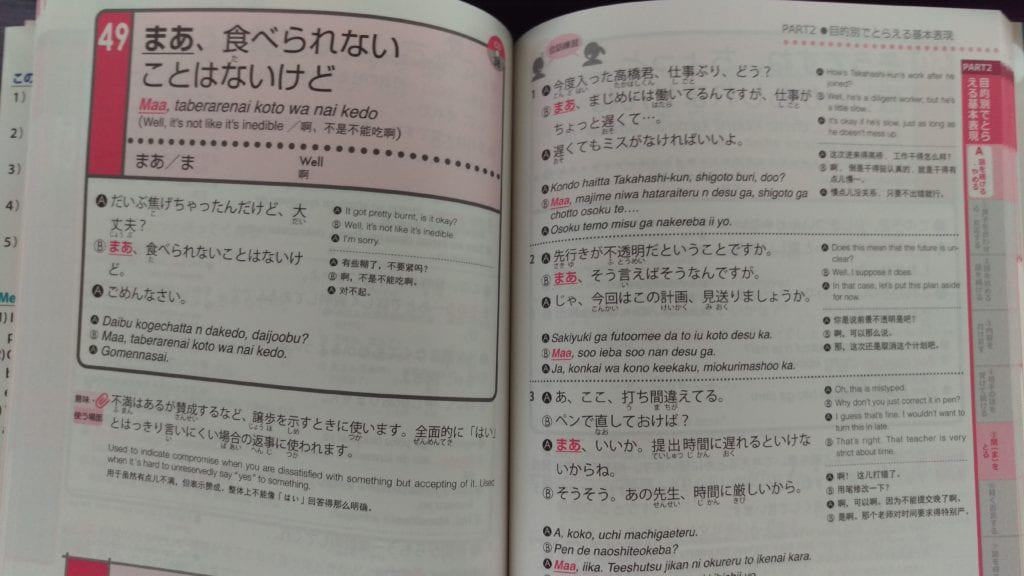 49
まあ、食べられない
ことはないけど
Maa, taberarenai koto wa nai kedo
(Well, it's not like it's inedible ／啊、不是不能吃啊)
まあ／ま
Well
啊
Ⓐだいぶ焦げちゃったんだけど、大
丈夫？
Ⓑまあ、食べられないことはないけ
ど。
Ⓐごめんなさい。
Ⓐ It got pretty burnt, is it okay?
Ⓑ Well, it's not like it's inedible.
Ⓐ I'm sorry.
Ⓐ 有些糊了，不要紧吗？
Ⓑ 啊，不是不能吃啊。
Ⓐ 对不起。
Ⓐ Daibu kogechatta n dakedo, daijoobu?
Ⓑ Maa, taberarenai koto wa nai kedo.
Ⓐ Gomennasai.
意味・
使う場面
不満はあるが賛成するなど、譲歩を示すときに使います。全面的に「はい」
とはっきり言いにくい場合の返事に使われます。
Used to indicate compromise when you are dissatisfied with something but accepting of it. Used
when it's hard to unreservedly say "yes" to something.
用于虽然有点儿不满，但表示赞成，整体上不能像「はい」回答得那么明确。
PART2 ●目的別でとらえる基本表現
会話練習
1 Ⓐ今度入った高橋君、仕事ぶり、どう？
Ⓑまあ、まじめには働いてるんですが、仕事が
ちょっと遅くて…。
Ⓐ遅くてもミスがなければいいよ。
Ⓐ Kondo haitta Takahashi-kun, shigoto buri, doo?
Ⓑ Maa, majime niwa hataraiteru n desu ga, shigoto ga
chotto osoku te….
Ⓐ Osoku temo misu ga nakereba ii yo.
Ⓐ How's Takahashi-kun's work after he
joined?
Ⓑ Well, he's a diligent worker, but he's
a little slow...
Ⓐ It's okay if he's slow, just as long as
he doesn't mess up.
Ⓐ 这次进来得高桥，工作干得怎么样？
Ⓑ 啊，倒是干得挺认真的，就是干得有
点儿慢…。
Ⓐ 慢点儿没关系，只要不出错就行。
2 Ⓐ先行きが不透明だということですか。
Ⓑまあ、そう言えばそうなんですが。
Ⓐじゃ、今回はこの計画、見送りましょうか。
Ⓐ Sakiyuki ga futoomee da to iu koto desu ka.
Ⓑ Maa, soo ieba soo nan desu ga.
Ⓐ Ja, konkai wa kono keekaku, miokurimashoo ka.
Ⓐ Does this mean that the future is un-
clear?
Ⓑ Well, I suppose it does.
Ⓐ In that case, let's put this plan aside
for now.
Ⓐ 你是说前景不透明是吧？
Ⓑ 啊，可以那么说。
Ⓐ 那，这次还是取消这个计划吧。
3 Ⓐあ、ここ、打ち間違えてる。
Ⓑペンで直しておけば？
Ⓐまあ、いいか。提出時間に遅れるといけな
いからね。
Ⓑそうそう。あの先生、時間に厳しいから。
Ⓐ A, koko, uchi machigaeteru.
Ⓑ Pen de naoshiteokeba?
Ⓐ Maa, iika. Teeshutsu jikan ni okureru to ikenai kara.
Ⓐ Oh, this is mistyped.
Ⓑ Why don't you just correct it in pen?
Ⓐ I guess that's fine. I wouldn't want to
turn this in late.
Ⓑ That's right. That teacher is very
strict about time.
Ⓐ 啊！这儿打错了。
Ⓑ 用笔修改一下？
Ⓐ 啊，可以啊。因为不能提交晚了啊。
Ⓑ 是啊。那个老师对时间要求得特别严。
PART2
目的別でとら
える基本表現